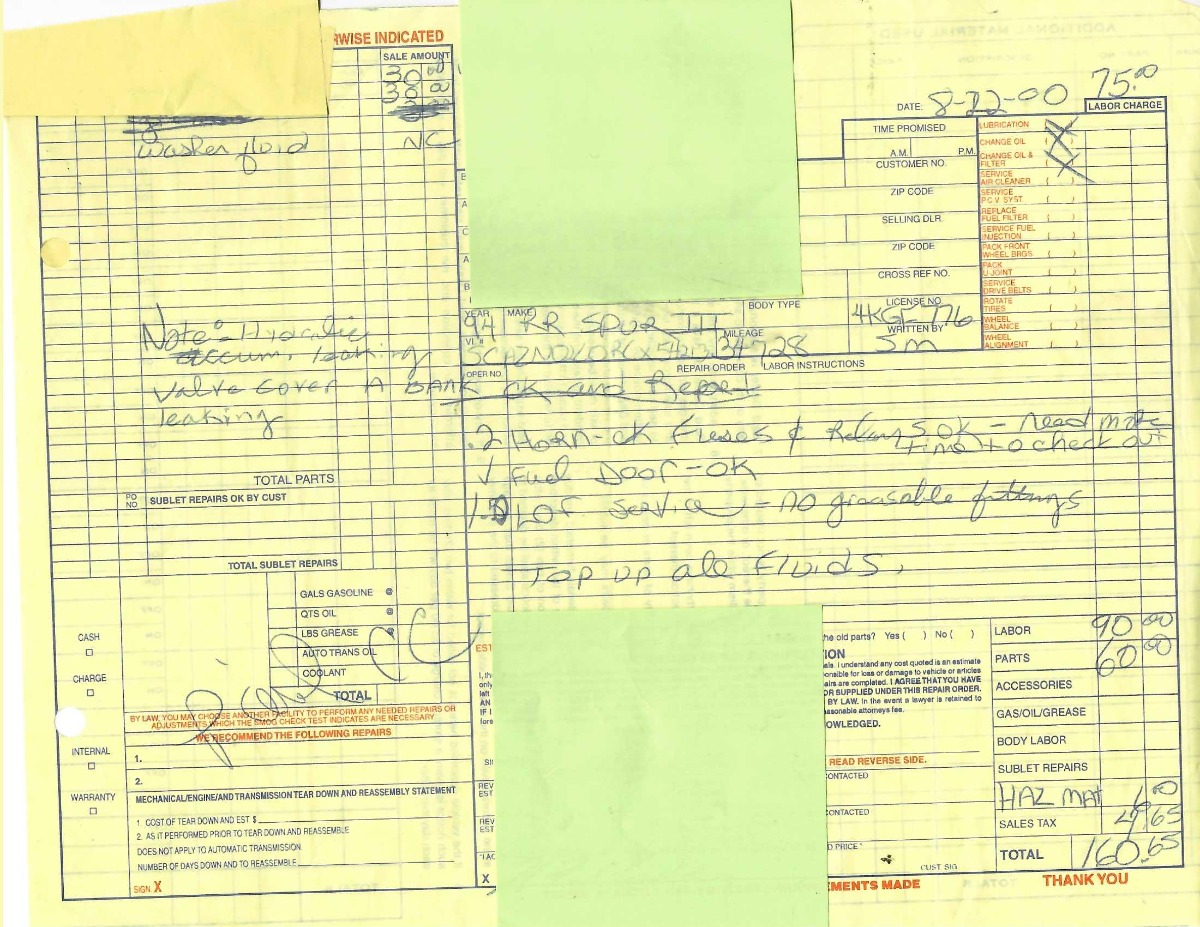 RWISE INDICATED
SALE AMOUNT
30 00
30 00
Washer fluid NC
Note: Hydraulic
accum. leaking
Valve cover A BANK
leaking
TOTAL PARTS
PO NO SUBLET REPAIRS OK BY CUST
TOTAL SUBLET REPAIRS
GALS GASOLINE @
QTS OIL @
LBS GREASE @
AUTO TRANS OIL
COOLANT
TOTAL
CASH
CHARGE
INTERNAL
WARRANTY
BY LAW, YOU MAY CHOOSE ANOTHER FACILITY TO PERFORM ANY NEEDED REPAIRS OR
ADJUSTMENTS WHICH THE SMOG CHECK TEST INDICATES ARE NECESSARY
WE RECOMMEND THE FOLLOWING REPAIRS
1.
2.
MECHANICAL/ENGINE/AND TRANSMISSION TEAR DOWN AND REASSEMBLY STATEMENT
1 COST OF TEAR DOWN AND EST $
2. AS IT PERFORMED PRIOR TO TEAR DOWN AND REASSEMBLE
DOES NOT APPLY TO AUTOMATIC TRANSMISSION
NUMBER OF DAYS DOWN AND TO REASSEMBLE
SIGN X
DATE: 8-22-00
75.00
LABOR CHARGE
TIME PROMISED
A.M. P.M.
CUSTOMER NO.
ZIP CODE
SELLING DLR
ZIP CODE
CROSS REF NO.
LICENSE NO.
WRITTEN BY
SM
LUBRICATION
CHANGE OIL
CHANGE OIL & FILTER
SERVICE AIR CLEANER ( )
SERVICE P.C.V SYST ( )
REPLACE FUEL FILTER ( )
SERVICE FUEL INJECTION ( )
PACK FRONT WHEEL BRGS ( )
PACK U-JOINT ( )
SERVICE DRIVE BELTS ( )
ROTATE TIRES ( )
WHEEL BALANCE ( )
WHEEL ALIGNMENT ( )
YEAR MAKE BODY TYPE
94 RR SPUR III
MILEAGE
34728
OPER NO. REPAIR ORDER LABOR INSTRUCTIONS
ck and Report
.2 Horn-ck Fuses & Relays ok - need more
time to check out
Fuel Door-ok
LOF Service - no greasable fittings
Top up all Fluids.
the old parts? Yes ( ) No ( )
ION
ale. I understand any cost quoted is an estimate
ponsible for loss or damage to vehicle or articles
airs are completed. I AGREE THAT YOU HAVE
OR SUPPLIED UNDER THIS REPAIR ORDER.
BY LAW. In the event a lawyer is retained to
asonable attorneys fee.
OWLEDGED.
READ REVERSE SIDE.
CONTACTED
CONTACTED
D PRICE
CUST SIG
EMENTS MADE
LABOR 90.00
PARTS 60.00
ACCESSORIES
GAS/OIL/GREASE
BODY LABOR
SUBLET REPAIRS
HAZ MAT 6.00
SALES TAX 4.65
TOTAL 160.65
THANK YOU